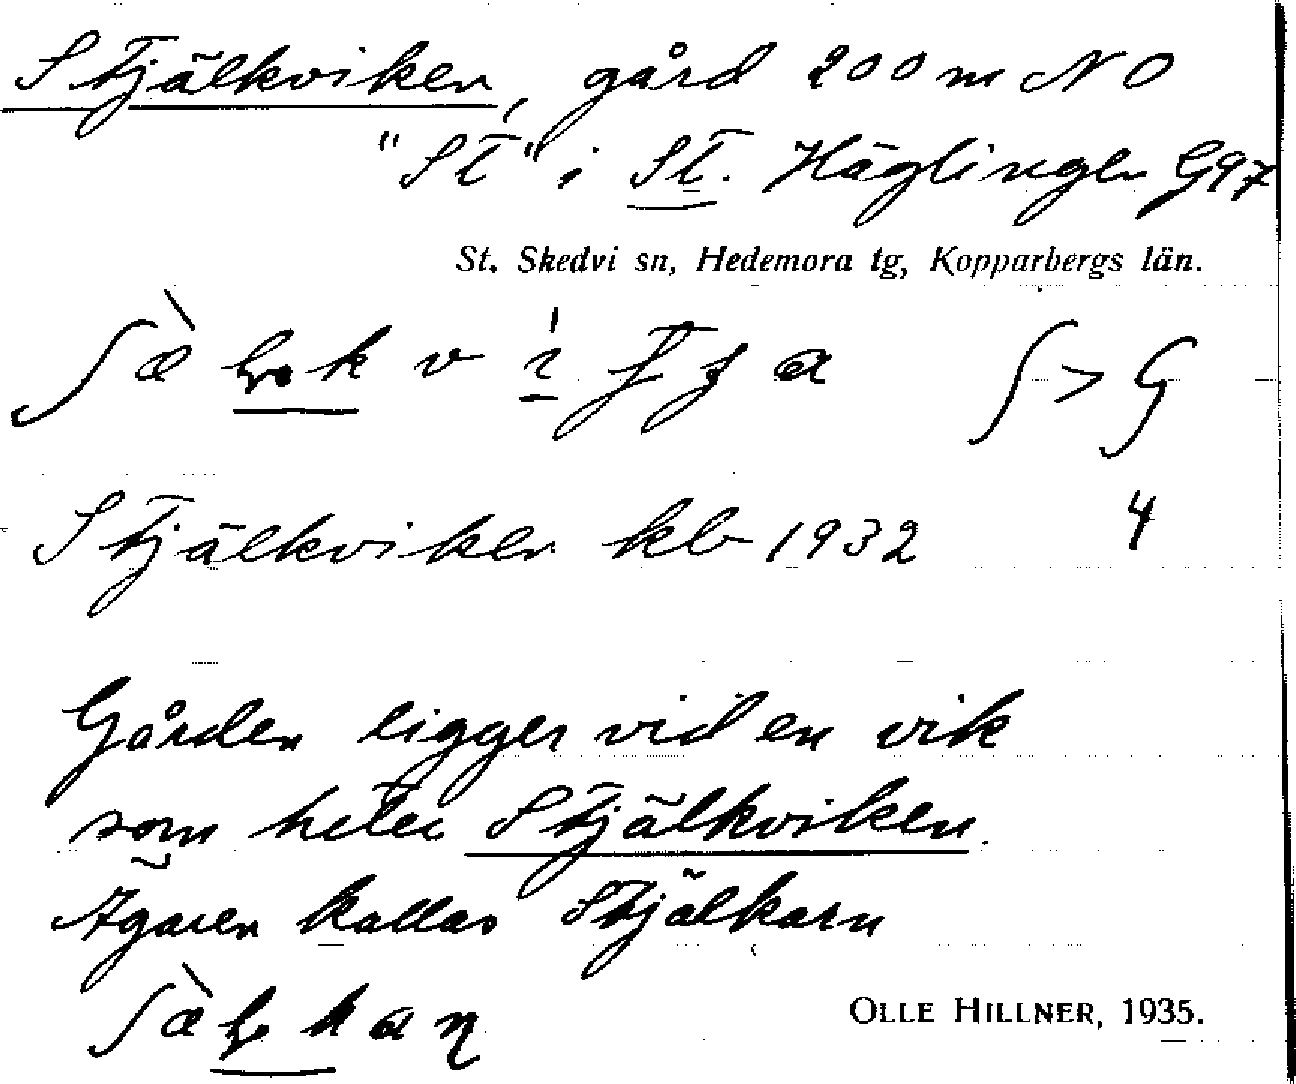 Stjälkviken, gård 200 m NO
"St" i St. Häglingen G97
St. Skedvi sn, Hedemora tg, Kopparbergs län.
ʃ > G
Stjälkviken kb 1932 4
Gården ligger vid en vik
som heter Stjälkviken.
Ägaren kallas Stjälkarn
OLLE HILLNER, 1935.